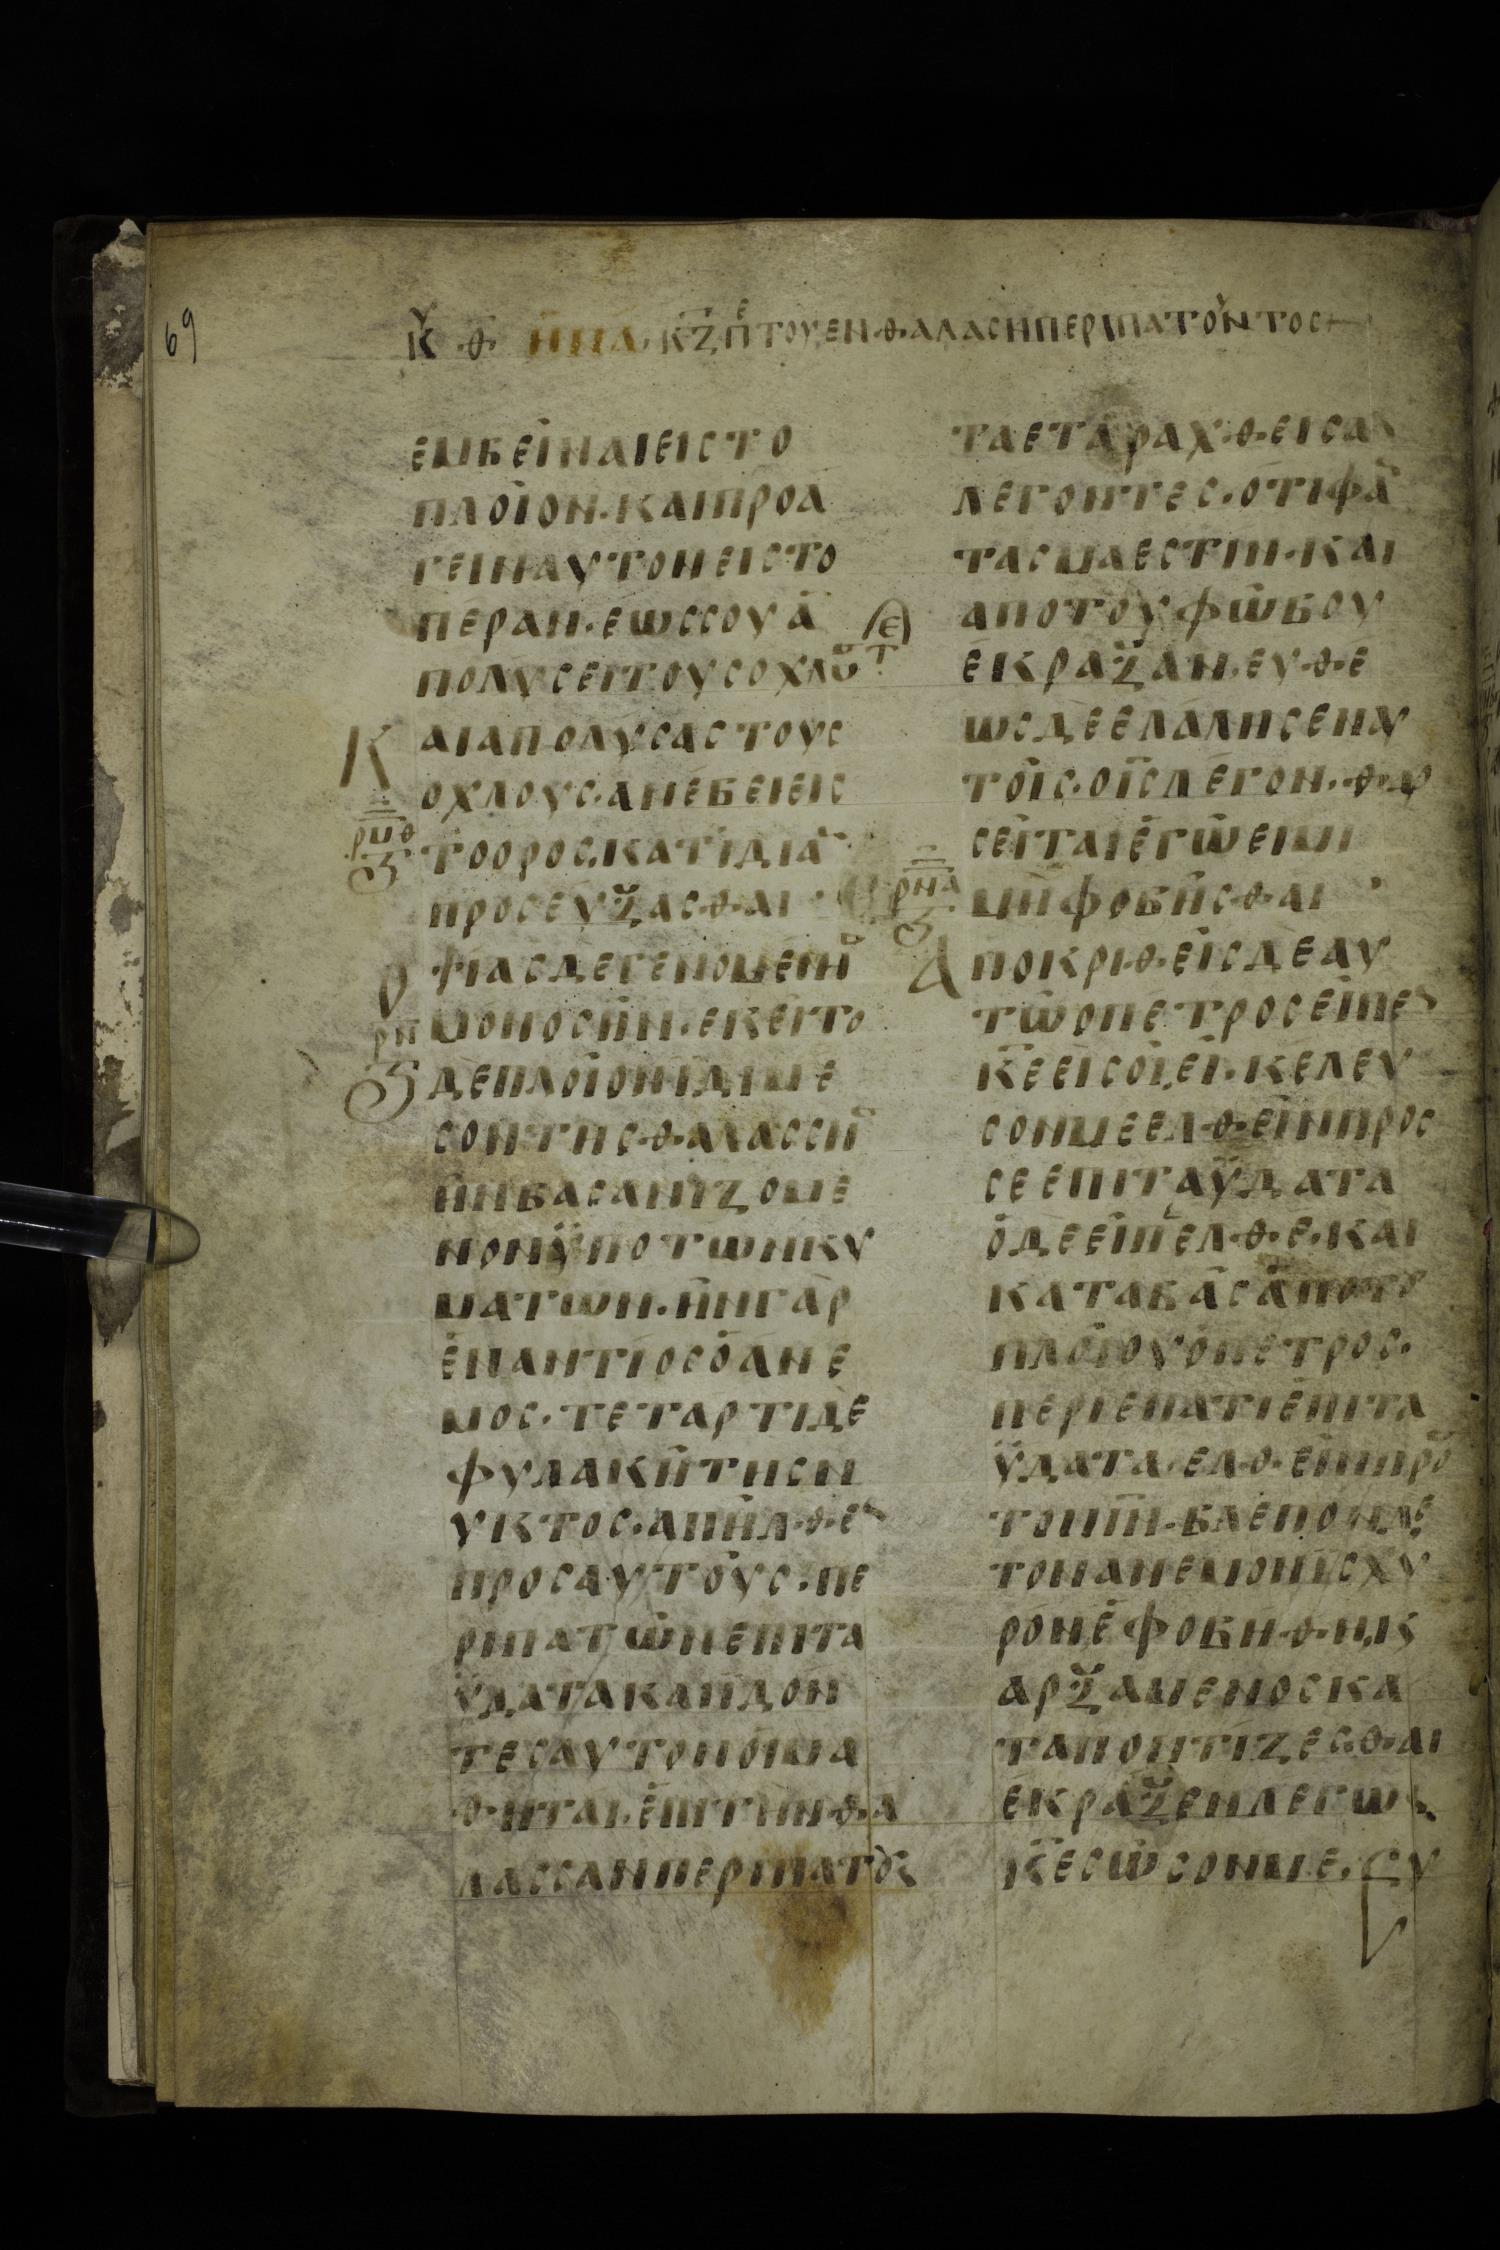 69
Κυ θ ΗΠΛ. ΚΖ Πε ΤΟΥ.ΕΝ.Θ.ΑΛΑCΗΠΕΡΙΠΑΤΟΥΝΤΟC
ΕΜΒΕΙΝΑΙΕΙCΤΟ
ΠΛΟΙΟΝ.ΚΑΙΠΡΟΑ
ΓΕΙΝΑΥΤΟΝΕΙCΤΟ
ΠΕΡΑΝ.ΕѠCCΟΥΑ̅
ΠΟΛΥCΕΙΤΟΥCΟΧΛȣ
ΚΑΙΑΠΟΛΥCΑCΤΟΥC
ΟΧΛΟΥC.ΑΝΕΒΕΙΕΙC
ρμθ
ΤΟΟΡΟC.ΚΑΤΙΔΙΑ̅
ΠΡΟCΕΥΞΑCΘΑΙ
ΟΨΙΑCΔΕΓΕΝΟΜΕΝΗ
ρν
ΜΟΝΟCΗΝ.ΕΚΕΙΤΟ
ΔΕΠΛΟΙΟΝΙΔΙΜΕ
CΟΝΤΗCΘΑΛΑCCΗ
ΗΝΒΑCΑΝΙΖΟΜΕ
ΝΟΝΫΠΟΤѠΝΚΥ
ΜΑΤѠΝ.ΗΝΓΑΡ
ΕΝΑΝΤΙΟCΟΑΝΕ
ΜΟC.ΤΕΤΑΡΤΙΔΕ
ΦΥΛΑΚΗΤΗCΝ
ΥΚΤΟC.ΑΠΗΛΘΕ
ΠΡΟCΑΥΤΟΥC.ΠΕ
ΡΙΠΑΤѠΝΕΠΙΤΑ
ΫΔΑΤΑΚΑΙΙΔΟΝ
ΤΕCΑΥΤΟΝΟΙΜΑ
ΘΗΤΑΙ.ΕΠΙΤΗΝΘΑ
ΛΑCCΑΝΠΕΡΙΠΑΤȣ
ΤΑΕΤΑΡΑΧΘΕΙCΑ
ΛΕΓΟΝΤΕC.ΟΤΙΦΑ̅
ΤΑCΜΑΕCΤΙΝ.ΚΑΙ
ΑΠΟΤΟΥΦѠΒΟΥ
ΕΚΡΑΞΑΝ.ΕΥΘΕ
ѠCΔΕΕΛΑΛΗCΕΝΑΥ
ΤΟΙC.ΟΙCΛΕΓΟΝ.ΘΑΡ
CΕΙΤΑΙΕΓѠΕΙΜΙ
ρνα
ΜΗΦΟΒΗCΘΑΙ
ΑΠΟΚΡΙΘΕΙCΔΕΑΥ
ΤѠΟΠΕΤΡΟCΕΙΠΕ
Κ̅Ε̅ΕΙCΟΙΕΙ.ΚΕΛΕΥ
CΟΝΜΕΕΛΘΕΙΝΠΡΟC
CΕΕΠΙΤΑΫΔΑΤΑ
ΟΔΕΕΙΠΕΛΘΕ.ΚΑΙ
ΚΑΤΑΒΑCΑΠΟΤΟ
ΠΛΟΙΟΥΟΠΕΤΡΟC.
ΠΕΡΙΕΠΑΤΙΕΠΙΤΑ
ΫΔΑΤΑ.ΕΛΘΕΙΝΠΡΟ
ΤΟΝΙ̅Ν̅.ΒΛΕΠΟΝΔΕ
ΤΟΝΑΝΕΜΟΝΙCΧΥ
ΡΟΝΕΦΟΒΗΘΗ.Κ
ΑΡΞΑΜΕΝΟCΚΑ
ΤΑΠΟΝΤΙΖΕCΘΑΙ
ΕΚΡΑΞΕΝΛΕΓѠ
Κ̅Ε̅CѠCΟΝΜΕ.ΕΥ